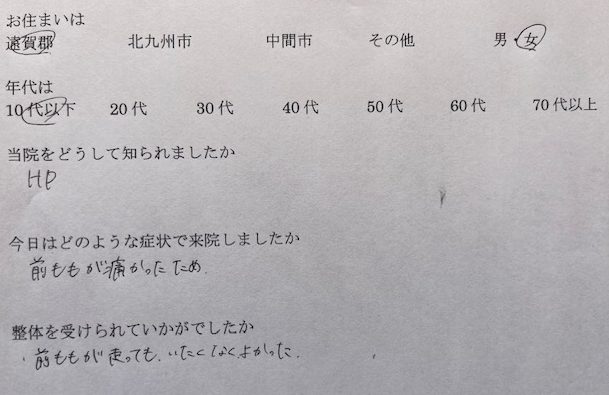 お住まいは
遠賀郡 北九州市 中間市 その他 男・女
年代は
10代以下 20代 30代 40代 50代 60代 70代以上
当院をどうして知られましたか
HP
今日はどのような症状で来院しましたか
前ももが痛かったため.
整体を受けられていかがでしたか
前ももが走っても、いたくなくよかった.